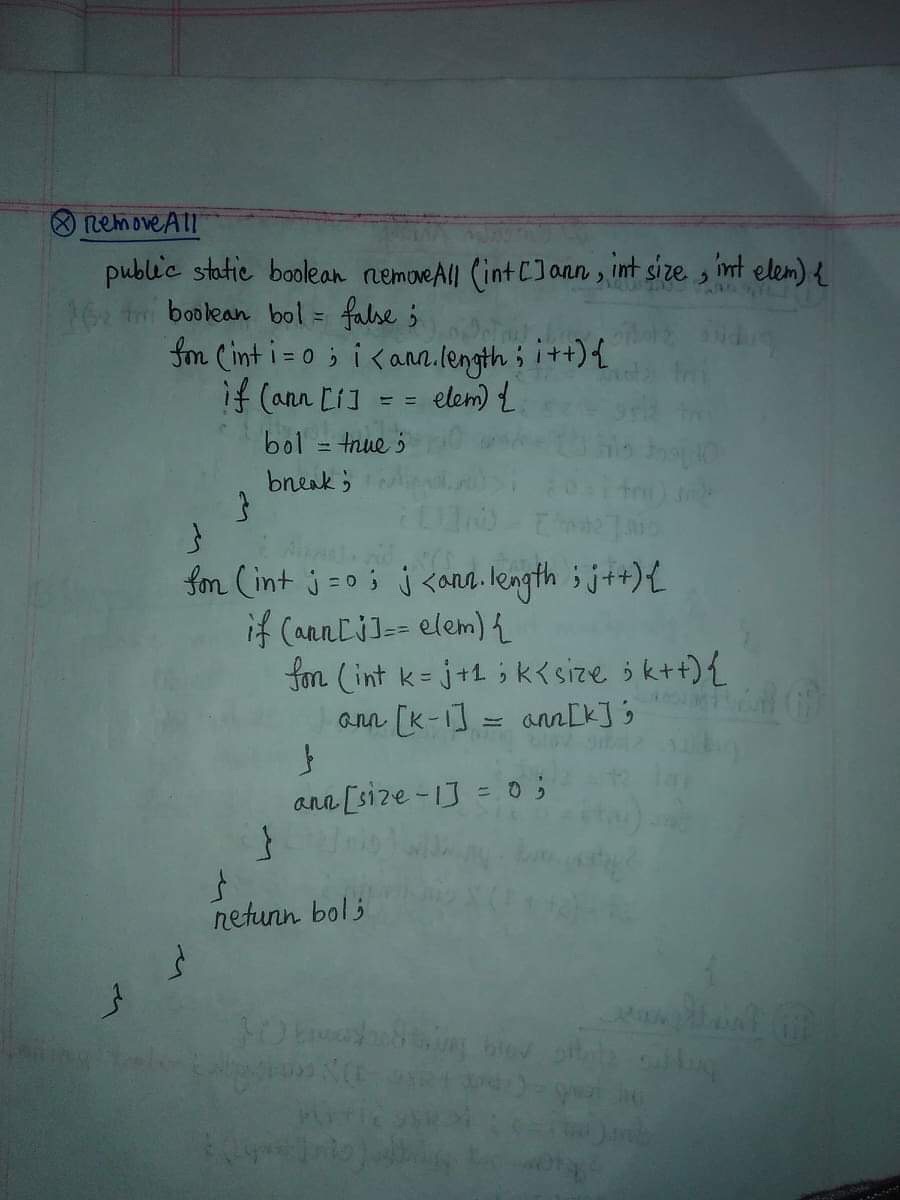 ⓧ removeAll
public static boolean removeAll (int []arr, int size, int elem) {
boolean bol = false ;
for (int i = 0 ; i < arr.length ; i++) {
if (arr [i] == elem) {
bol = true ;
break ;
}
}
for (int j = 0 ; j < arr.length ; j++) {
if (arr[j] == elem) {
for (int k = j+1 ; k < size ; k++) {
arr [k-1] = arr[k] ;
}
arr [size-1] = 0 ;
}
}
return bol ;
}
}